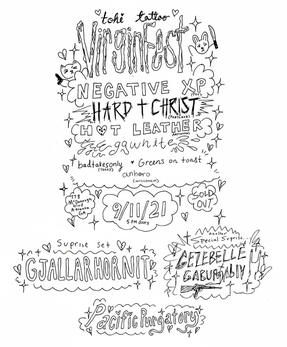 tohi tattoo
VirginFest
NEGATIVE XP
HARD + CHRIST
HOT LEATHER
eggwhite
badtakesonly ♥ Greens on toast
(Texas)
anhoro
9/11/21
5 PM doors
SOLD OUT
Suprise set
GJALLARHORNIT
another
Special Suprise
JEZEBELLE
GABURGABIY
Pacific Purgatory